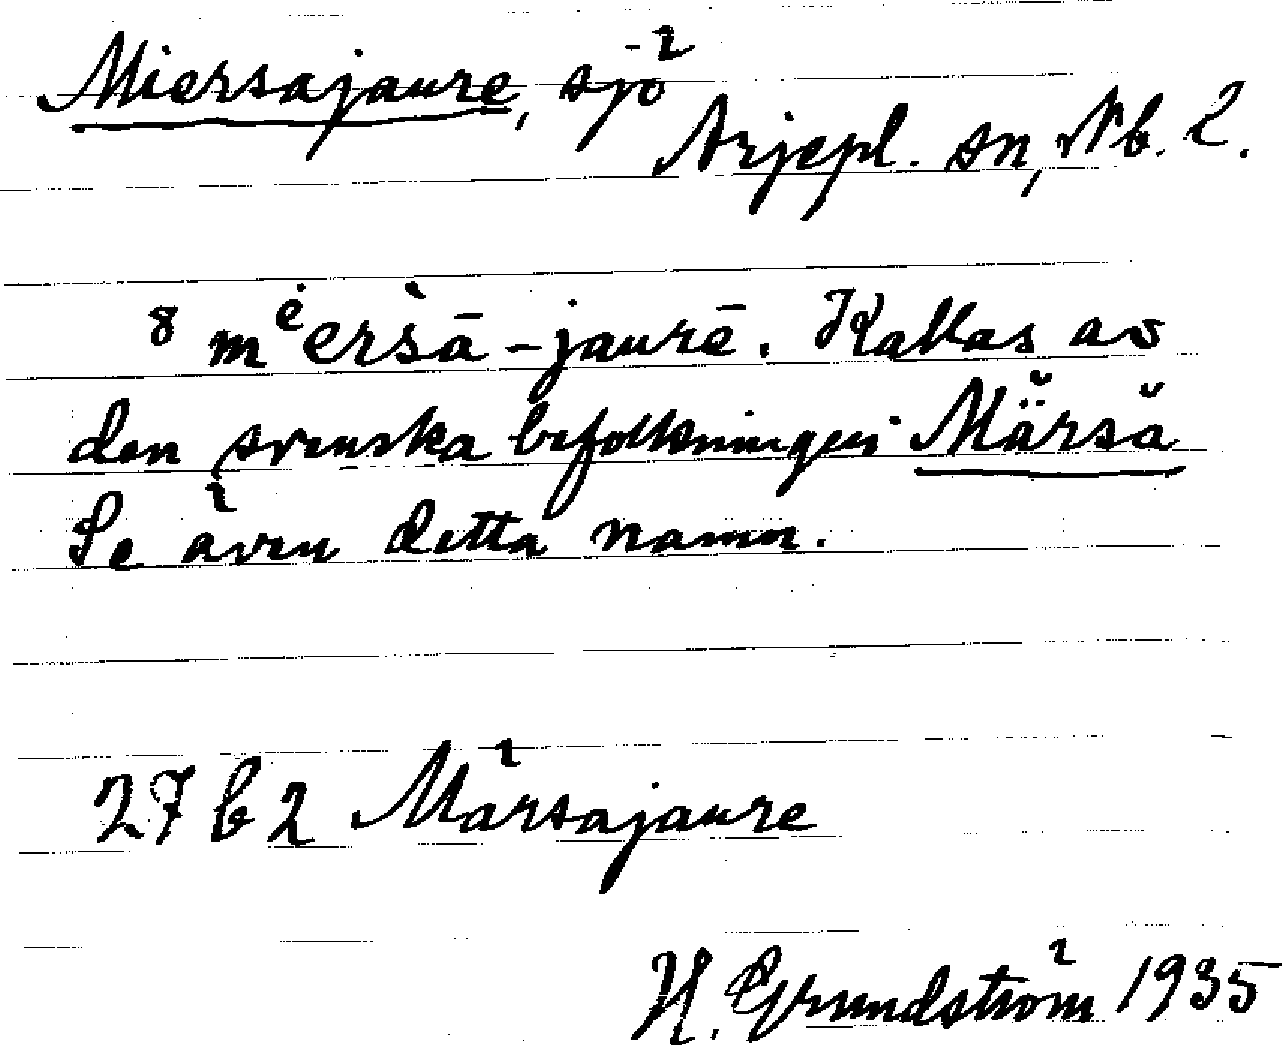 Miersajaure, sjö
Arjepl. sn, Nb. l.
8 mėersā-jaurē. Kallas av
den svenska befolkningen Märsä
Se även detta namn.
27 b 2 Märsajaure
H. Grundström 1935